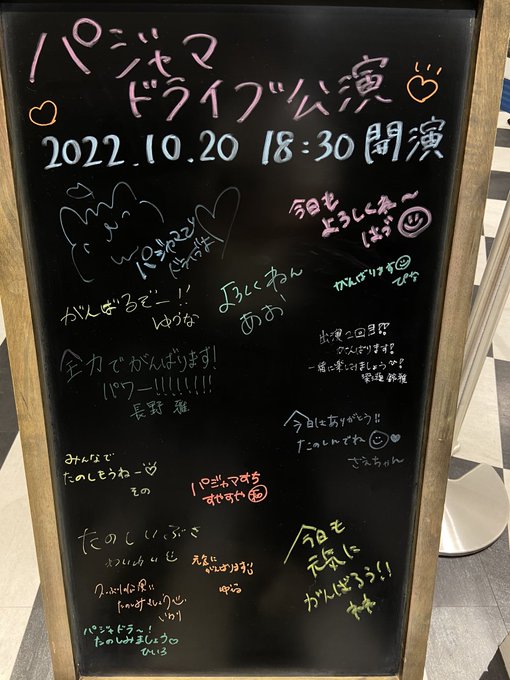 パジャマ
ドライブ公演
2022.10.20 18:30 開演
パジャマで
ドライブだよ
今日も
よろしくね〜
はづ
がんばるでー!!
ゆうな
よろしくねん
あお
がんばります
ぴな
全力でがんばります!
パワー!!!!!!!!
長野 雅
出演2回目!!
がんばります!
一緒に楽しみましょう
今日はありがとう!!
たのしんでね
さえちゃん
みんなで
たのしもうねー
その
パジャマすち
すやすや
たのしいぶき
元気に
がんばります
今日も
元気に
がんばろう!!
久ぶりね風に
たのしみましょう
パジャドラ〜!
たのしみましょう
ひいろ